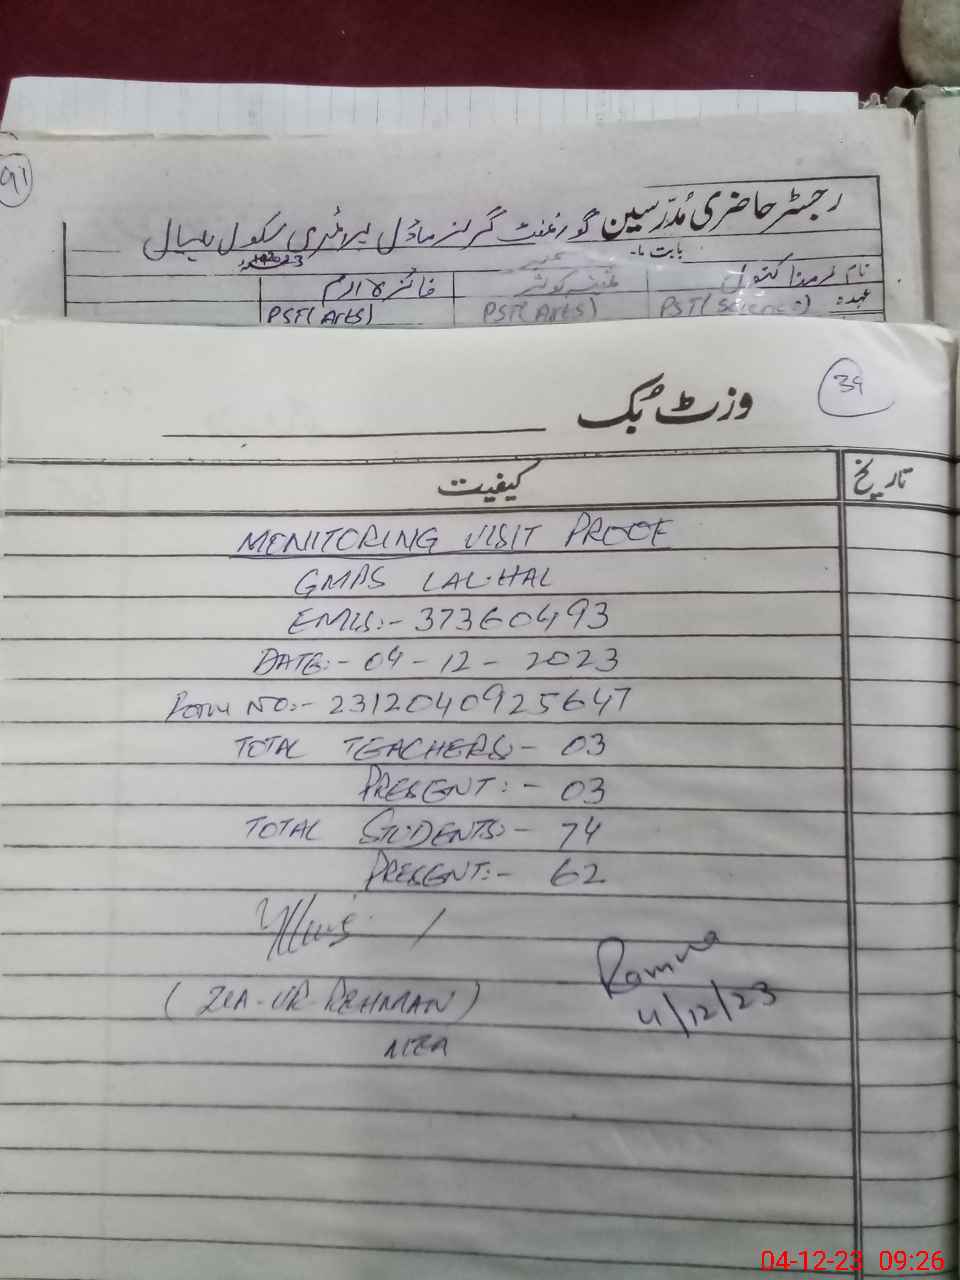 91
رجسٹر حاضری مُدرّسین گورنمنٹ گرلز ماڈل پرائمری سکول
بابت ماہ
نام
عہدہ PST(Science) PST(Arts) PST(Arts)
39
وزٹ بُک
تاریخ کیفیت
MONITORING VISIT PROOF
GMPS LAL-HAL
EMIS:- 37360493
DATE:- 04-12-2023
Form NO:- 2312040925647
TOTAL TEACHERS:- 03
PRESENT:- 03
TOTAL STUDENTS:- 74
PRESENT:- 62
(ZIA-UR-REHMAN)
MEA
4/12/23
04-12-23 09:26